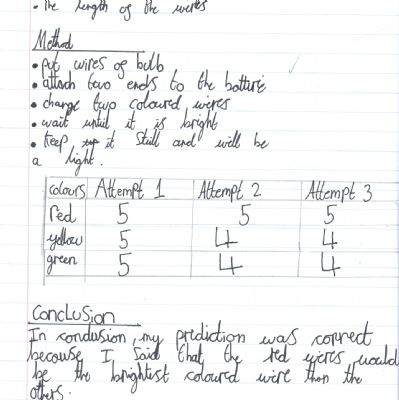 • The length of the wires
Method
• put wires of bulb
• attach two ends to the batturie
• change two coloured wires
• wait until it is bright
• keep it still and will be
a light.
colours Attempt 1 Attempt 2 Attempt 3
red 5 5 5
yellow 5 4 4
green 5 4 4
Conclusion
In conclusion, my prediction was correct
because I said that the red wires would
be the brightest coloured wire than the
others.